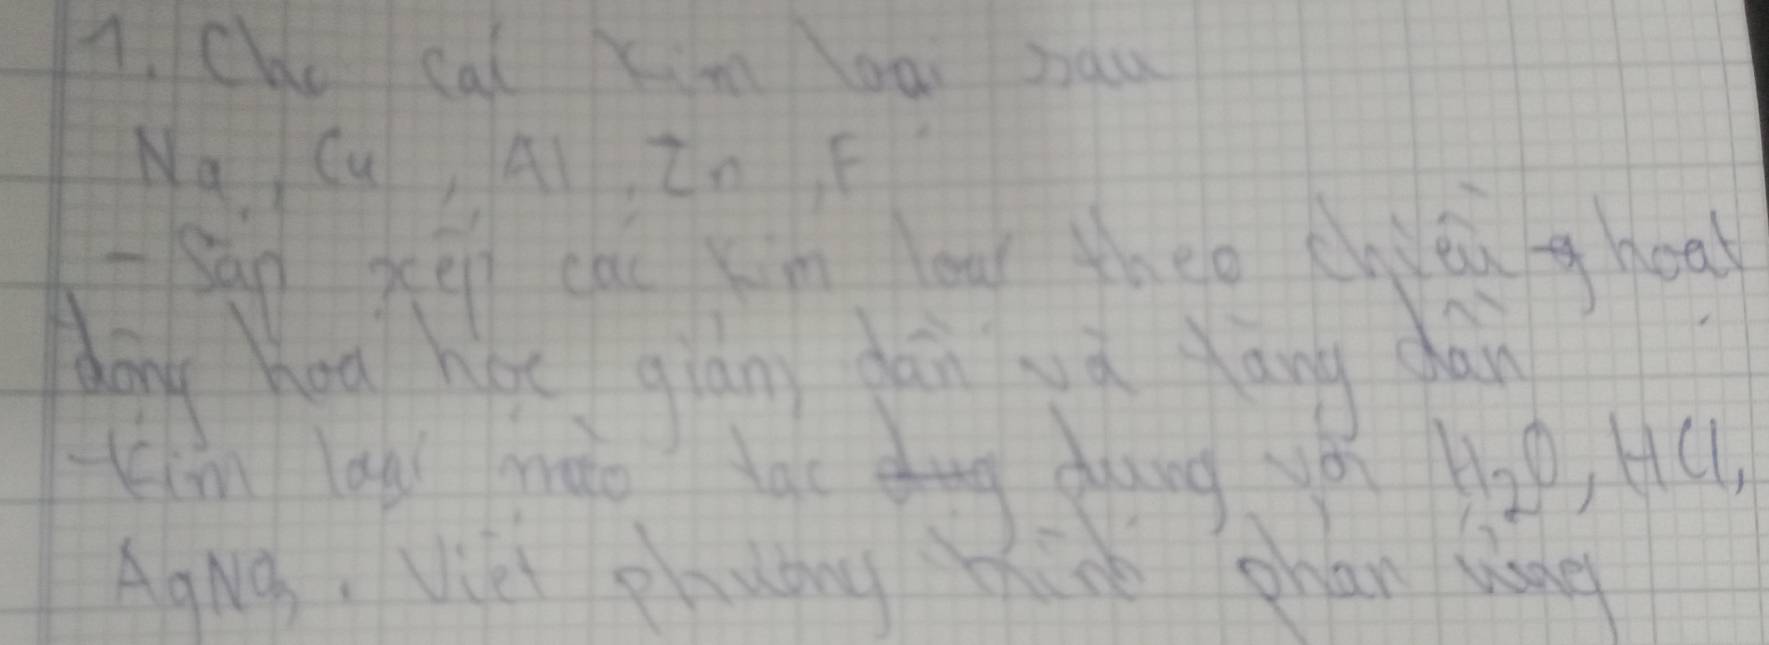 1. Cho các kim loại sau
Na, Cu, Al, Zn, F
- Sắp xếp các kim loại theo chiều hoạt
động hoá học giảm dần và tăng dần
- Kim loại nào tác dụng với H2O, HCl,
AgNO3. Viết phương trình phản ứng